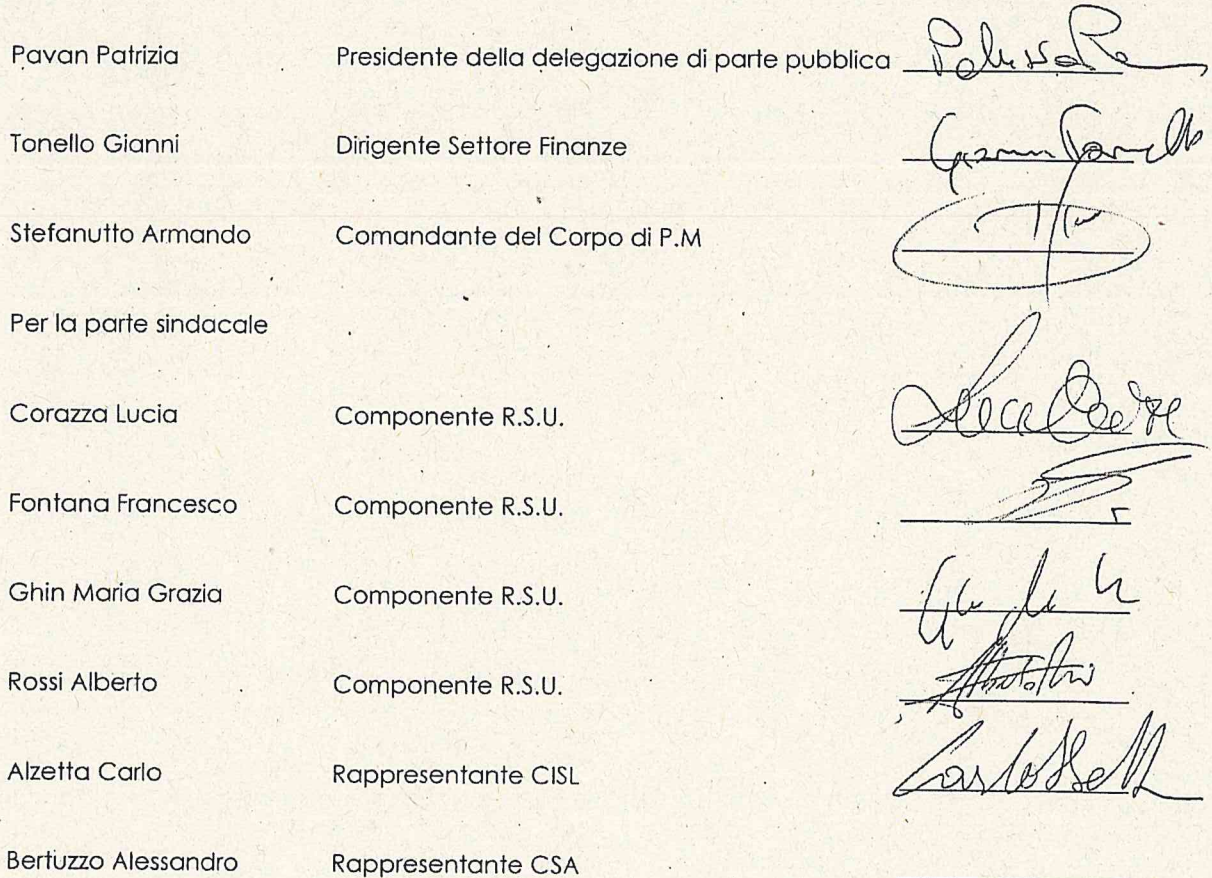 Pavan Patrizia Presidente della delegazione di parte pubblica
Tonello Gianni Dirigente Settore Finanze
Stefanutto Armando Comandante del Corpo di P.M
Per la parte sindacale
Corazza Lucia Componente R.S.U.
Fontana Francesco Componente R.S.U.
Ghin Maria Grazia Componente R.S.U.
Rossi Alberto Componente R.S.U.
Alzetta Carlo Rappresentante CISL
Bertuzzo Alessandro Rappresentante CSA